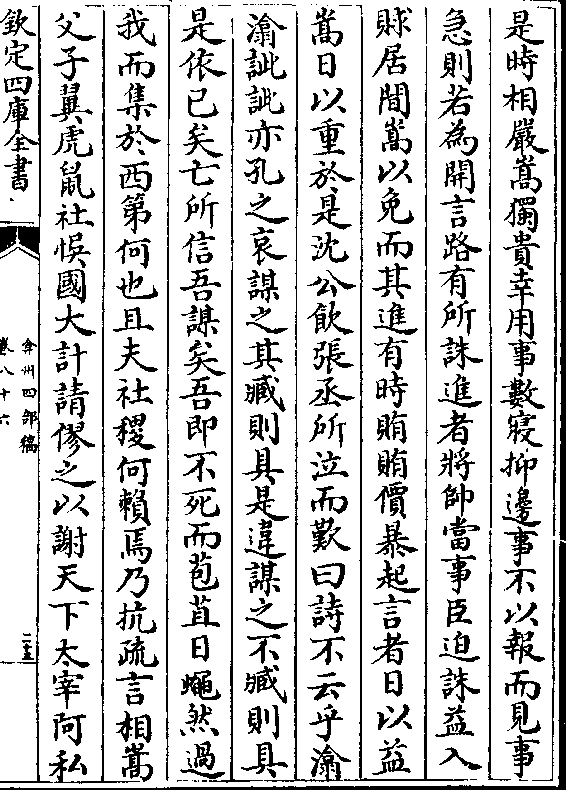 是時相嚴嵩獨貴幸用事數寢抑邊事不以報而見事
急則若為開言路有所誅進者將帥當事臣迫誅益入
賕居間嵩以免而其進有時賄賄價暴起言者日以益
嵩日以重於是沈公飲張丞所泣而歎曰詩不云乎潝
潝訿訿亦孔之哀謀之其臧則具是違謀之不臧則具
是依已矣亡所信吾謀矣吾即不死而苞苴日蠅然過
我而集於西第何也且夫社稷何賴焉乃抗疏言相嵩
父子翼虎鼠社悞國大計請僇之以謝天下太宰阿私
欽定四庫全書
弇州四部稿
卷八十六
二十五